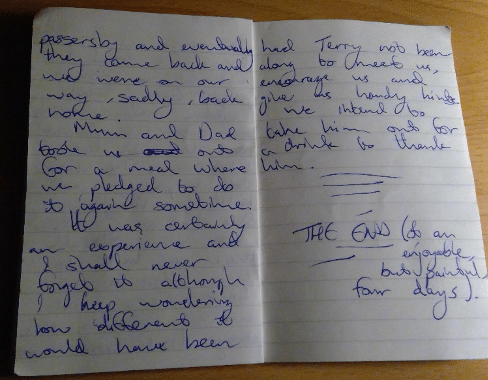 passersby and eventually
they came back and
we were on our
way, sadly, back
home.
Mum and Dad
took us out
for a meal where
we pledged to do
it again sometime.
It was certainly
an experience and
I shall never
forget it although
I keep wondering
how different it
would have been
had Terry not been
along to meet us,
encourage us and
give us handy hints
we intend to
take him out for
a drink to thank
him.
THE END (to an
enjoyable,
but painful,
four days).